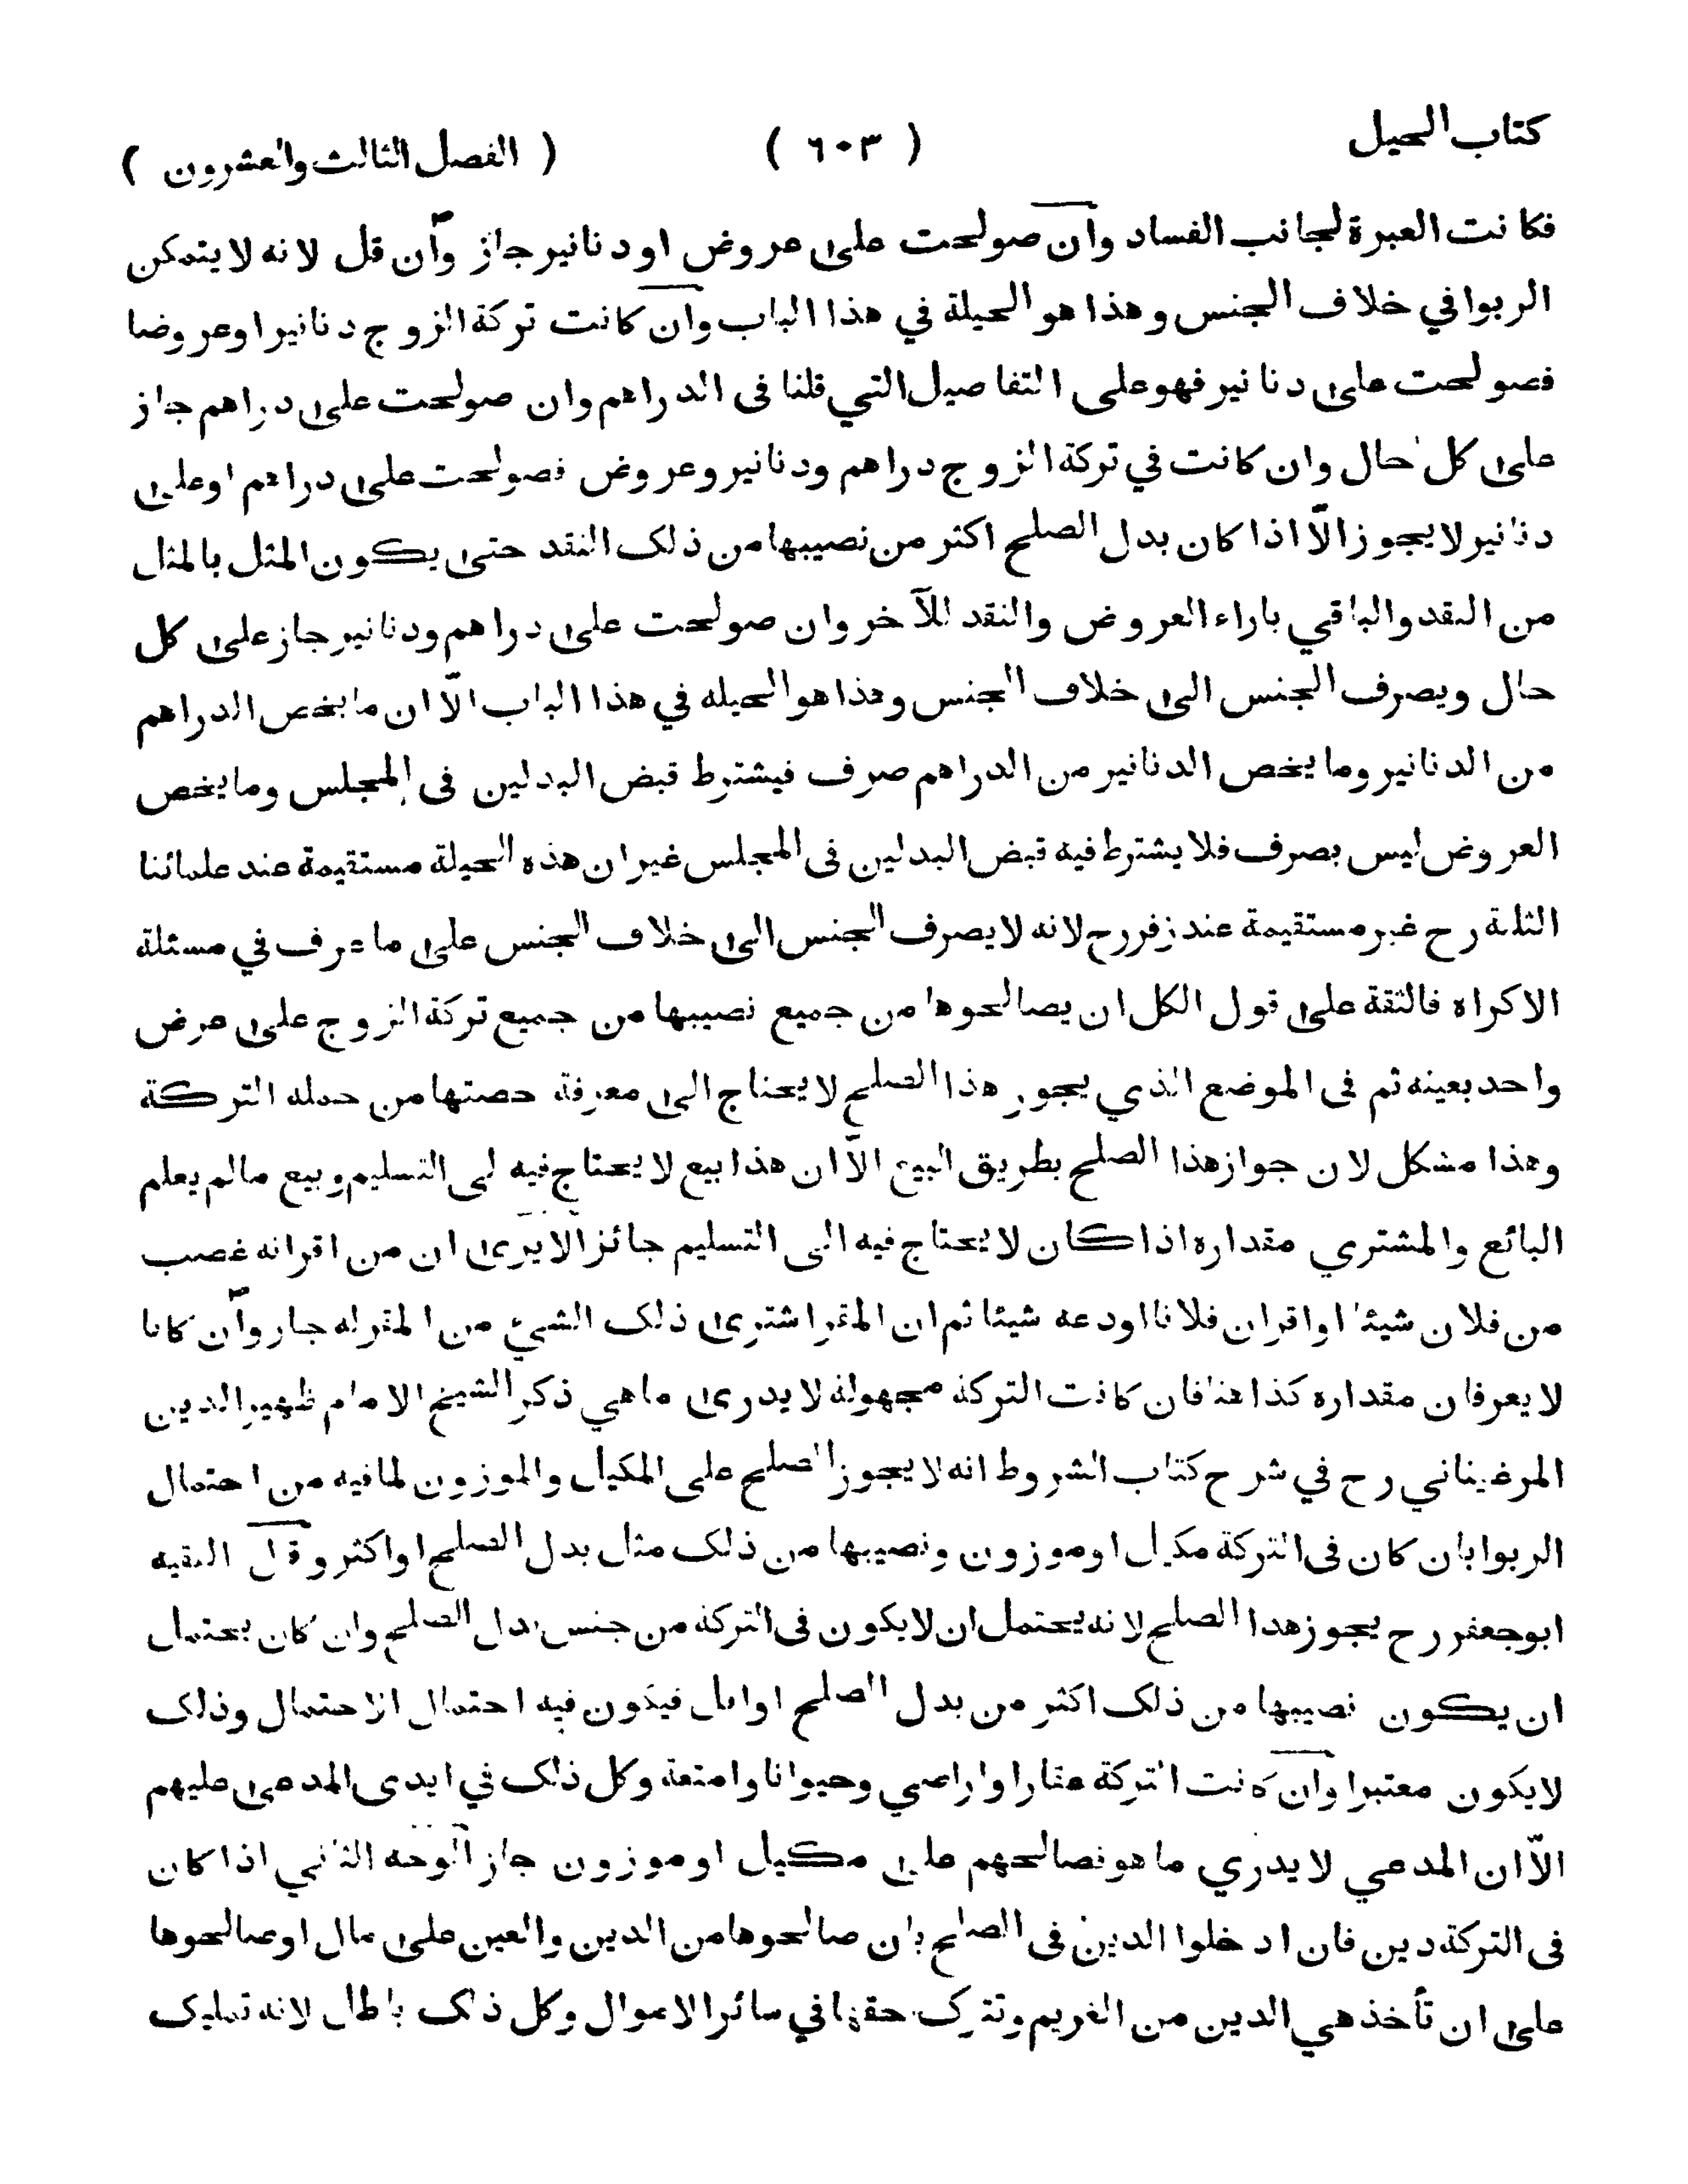 كتاب الحيل ( ٦٠٣ ) ( الفصل الثالث والعشرون )
فكانت العبرة لجانب الفساد وان صولحت على عروض او دنانير جاز وان قل لانه لا يتمكن
الربوا في خلاف الجنس وهذا هو الحيلة في هذا الباب وان كانت تركة الزوج دنانير او عروضا
فصولحت على دنانير فهو على التفاصيل التي قلنا فى الدراهم وان صولحت على دراهم جاز
على كل حال وان كانت في تركة الزوج دراهم ودنانير وعروض فصولحت على دراهم او على
دنانير لا يجوز الّا اذا كان بدل الصلح اكثر من نصيبها من ذلك النقد حتى يكون المثل بالمثل
من النقد والباقي باراء العروض والنقد الآخر وان صولحت على دراهم ودنانير جاز على كل
حال ويصرف الجنس الى خلاف الجنس وهذا هو الحيله في هذا الباب الّا ان ما يخص الدراهم
من الدنانير وما يخص الدنانير من الدراهم صرف فيشترط قبض البدلين فى المجلس وما يخص
العروض ليس بصرف فلا يشترط فيه قبض البدلين فى المجلس غير ان هذه الحيلة مستقيمة عند علمائنا
الثلثة رح غير مستقيمة عند زفر رح لانه لا يصرف الجنس الى خلاف الجنس على ما عرف في مسئلة
الاكراه فالثقة على قول الكل ان يصالحوها من جميع نصيبها من جميع تركة الزوج على عرض
واحد بعينه ثم فى الموضع الذي يجوز هذا الصلح لا يحتاج الى معرفة حصتها من جمله التركة
وهذا مشكل لان جواز هذا الصلح بطريق البيع الّا ان هذا بيع لا يحتاج فيه الى التسليم وبيع مالم يعلم
البائع والمشتري مقداره اذا كان لا يحتاج فيه الى التسليم جائز الا يرى ان من اقر انه غصب
من فلان شيئا او اقر ان فلانا اودعه شيئا ثم ان المقر اشترى ذلك الشيئ من المقر له جاز وان كانا
لا يعرفان مقداره كذا هنا فان كانت التركة مجهولة لا يدرى ما هي ذكر الشيخ الامام ظهير الدين
المرغيناني رح في شرح كتاب الشروط انه لا يجوز الصلح على المكيل والموزون لما فيه من احتمال
الربوا بان كان فى التركة مكيل او موزون ونصيبها من ذلك مثل بدل الصلح او اكثر وقال الفقيه
ابوجعفر رح يجوز هدا الصلح لانه يحتمل ان لا يكون فى التركة من جنس بدل الصلح وان كان يحتمل
ان يكون نصيبها من ذلك اكثر من بدل الصلح او اقل فيكون فيه احتمال الاحتمال وذلك
لا يكون معتبرا وان كانت التركة عقارا واراضي وحيوانا وامتعة وكل ذلك في ايدى المدعى عليهم
الّا ان المدعي لا يدري ما هو فصالحهم على مكيل او موزون جاز الوجه الثاني اذا كان
فى التركة دين فان ادخلوا الدين فى الصلح بان صالحوها من الدين والعين على مال او صالحوها
على ان تأخذ هي الدين من الغريم وتترك حقها في سائر الاموال وكل ذلك باطل لانه تمليك